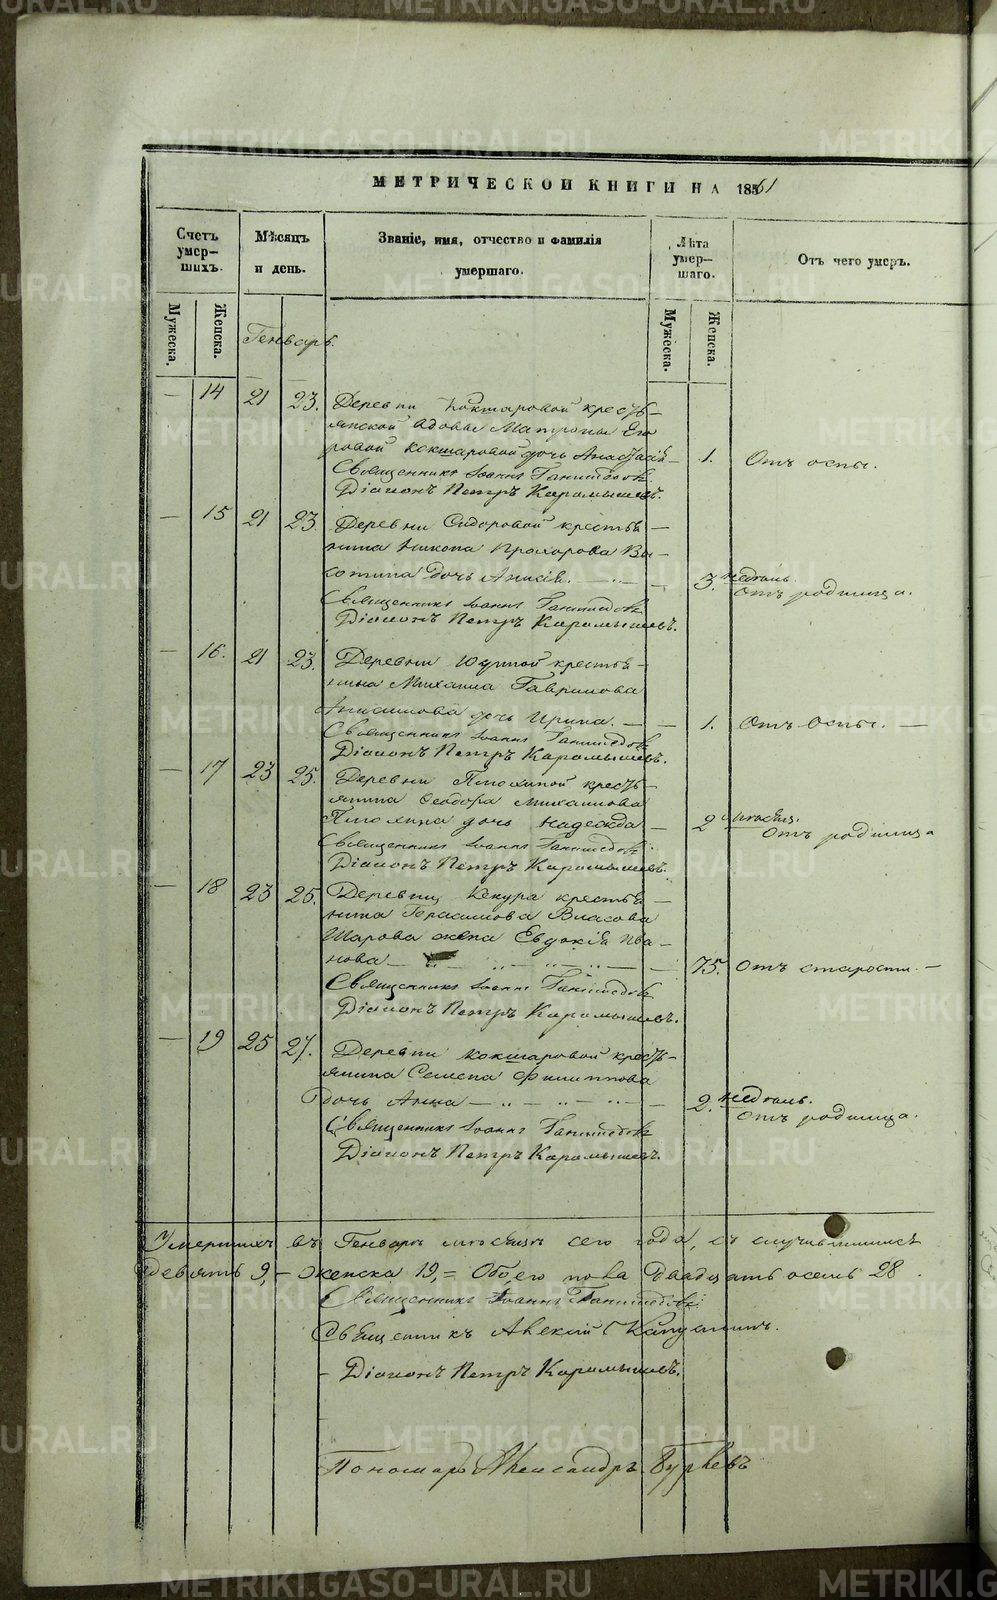 МЕТРИЧЕСКОЙ КНИГИ НА 1861
Счетъ умер-шихъ.
Мѣсяцъ и день.
Званіе, имя, отчество и фамилія умершаго.
Лѣта умер-шаго.
Отъ чего умеръ.
Мужеска.
Женска.
Мужеска.
Женска.
Генварь.
— 14 21 23. Деревни Кокшаровой кресть-
янской вдовы Матроны Его
ровой Кокшаровой дочь Анастасія — 1. Отъ оспы.
Священникъ Іоаннъ
Діаконъ Петръ Карамышевъ.
— 15 21 23 Деревни Сидоровой крестья-
нина Прохорова
дочь Анисія. — 3. недѣль. Отъ родимца.
Священникъ Іоаннъ
Діаконъ Петръ Карамышевъ.
— 16. 21 23. Деревни крестья-
нина Михаила Гаврилова
Анисимова дочь Ирина. — — 1. Отъ Оспы. —
Священникъ Іоаннъ
Діаконъ Петръ Карамышевъ.
— 17 23 25. Деревни кресть-
янина Ѳеодора Михайлова
дочь Надежда — 2 мѣсяц. Отъ родимца
Священникъ Іоаннъ
Діаконъ Петръ Карамышевъ.
— 18 23 25. Деревни Кекура крестья-
нина Герасимова Власова
Шарова жена Евдокія Ива-
нова — 75. Отъ старости. —
Священникъ Іоаннъ
Діаконъ Петръ Карамышевъ.
— 19 25 27. Деревни Кокшаровой кресть-
янина Семена Филиппова
дочь Анна — 2. недѣль. Отъ родимца.
Священникъ Іоаннъ
Діаконъ Петръ Карамышевъ.
Умершихъ въ Генварѣ мѣсяцѣ сего года,
девять 9, — Женска 19, = Обоего пола Двадцать осемь 28.
Священникъ Іоаннъ
Священникъ Алексій
— Діаконъ Петръ Карамышевъ.
Пономарь Александръ
METRIKI.GASO-URAL.RU